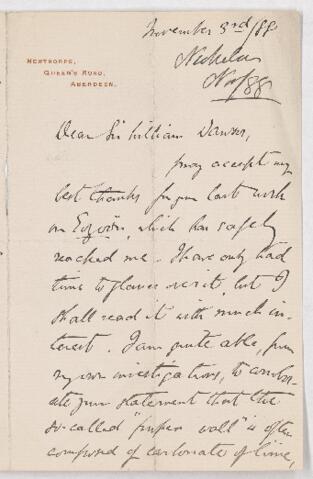 November 3rd /88
NEWTHORPE,
QUEEN'S ROAD,
ABERDEEN.
Nicholson
Nov/88
Dear Sir William Dawson,
pray accept my
best thanks for your last work
on Eozoön, which has safely
reached me. I have only had
time to glance over it, but I
shall read it with much in-
terest. I am quite able, from
my own investigations, to corrobor-
ate your statement that the
so-called "proper wall" is often
composed of carbonate of lime,